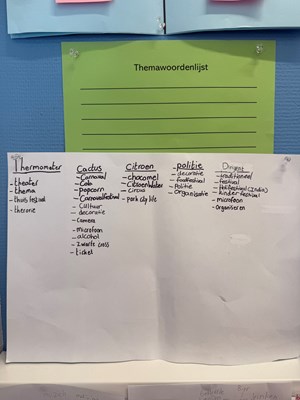 Themawoordenlijst
Thermometer
- theater
- thema
- theorie
Cactus
- Carnaval
- Cola
- popcorn
- Carnavalfestival
- Cultuur
- decoratie
- Camera
- microfoon
- alcohol
- Zwarte cross
- ticket
Citroen
- chocomel
- Citroenwater
- Circus
- park city life
politie
- decoratie
- foodfestival
- Politie
- Organisatie
Dirigent
- traditioneel
- festival
- Holifestival (India)
- kinderfestival
- microfoon
- organiseren